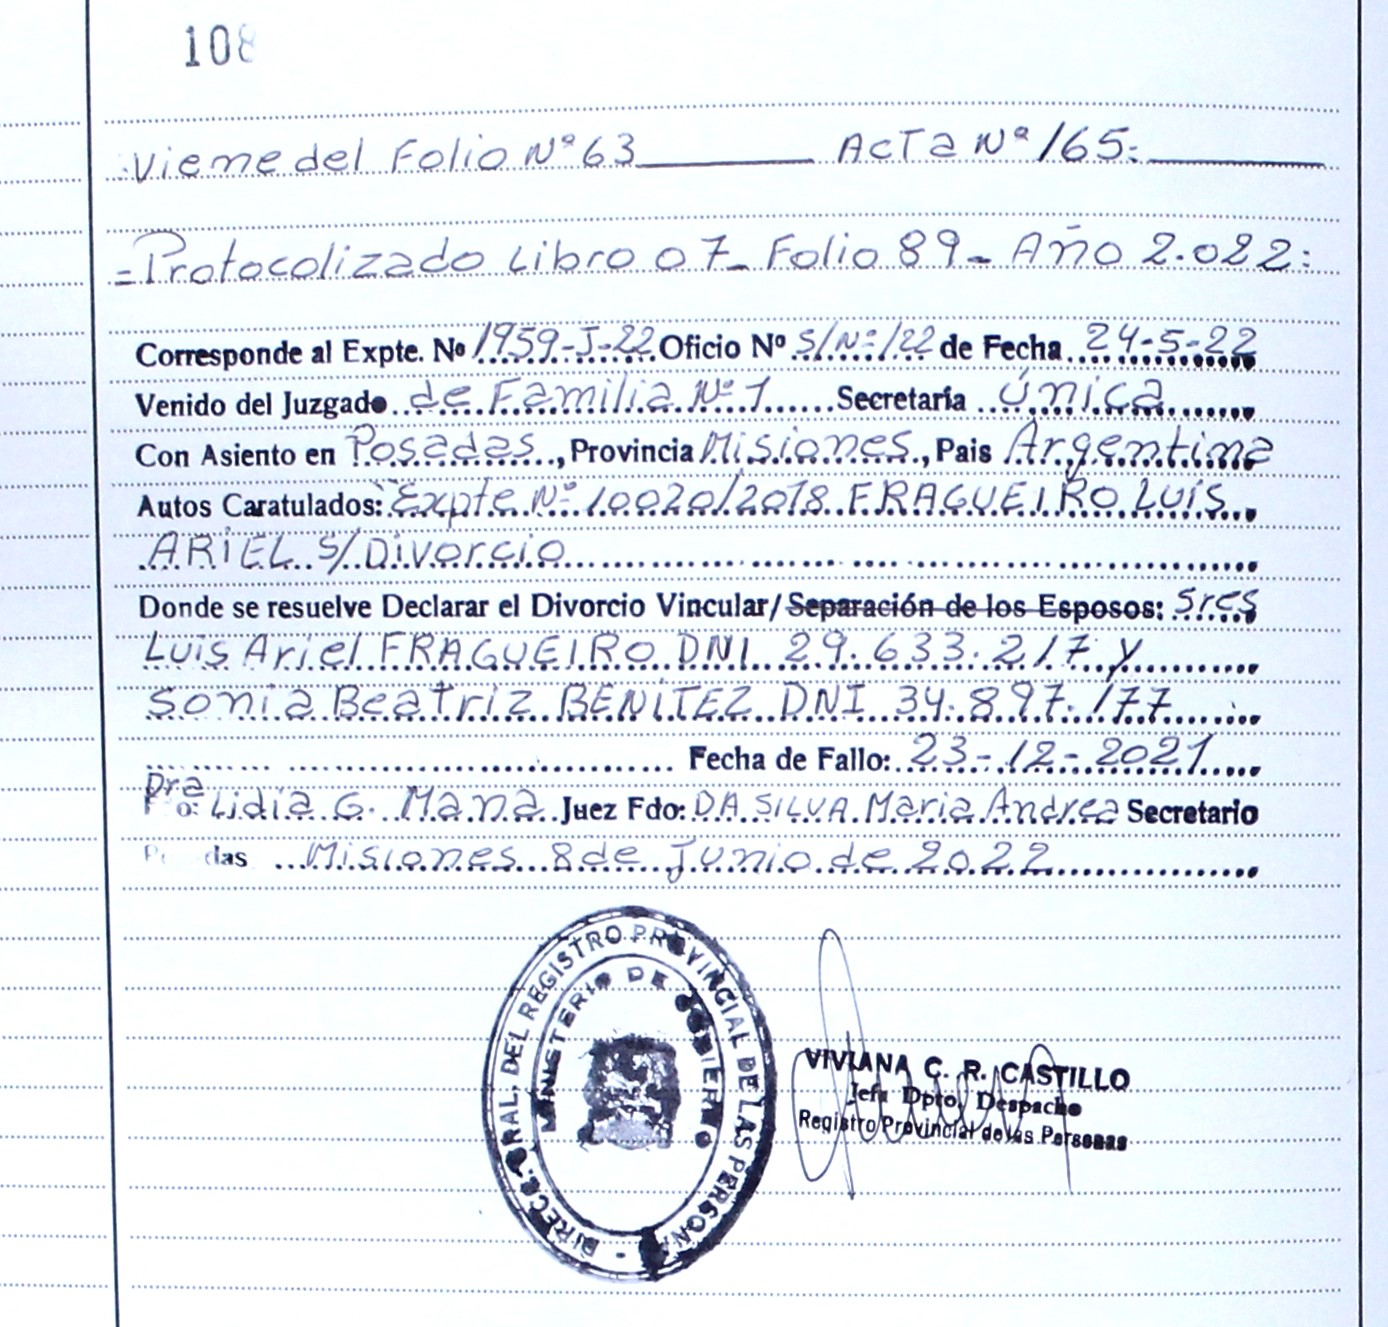 108
Viene del Folio Nº 63 Acta Nº 165.
=Protocolizado Libro 07_ Folio 89_ Año 2.022:
Corresponde al Expte. Nº 1959-J-22 Oficio Nº S/Nº/22 de Fecha 24-5-22
Venido del Juzgado de Familia Nº 1 Secretaría única
Con Asiento en Posadas, Provincia Misiones, Pais Argentina
Autos Caratulados: "Expte Nº 10020/2018 FRAGUEIRO LUIS
ARIEL S/ Divorcio
Donde se resuelve Declarar el Divorcio Vincular/Separación de los Esposos: Sres
Luis Ariel FRAGUEIRO DNI 29.633.217 y
Sonia Beatriz BENITEZ DNI 34.897.177
Fecha de Fallo: 23-12-2021
Dra Lidia G. Mana Juez Fdo: DA SILVA Maria Andrea Secretario
Posadas Misiones 8 de Junio de 2022
DIREC. GRAL. DEL REGISTRO PROVINCIAL DE LAS PERSONAS
MINISTERIO DE GOBIERNO
VIVIANA C. R. CASTILLO
Jefa Dpto. Despacho
Registro Provincial de las Personas